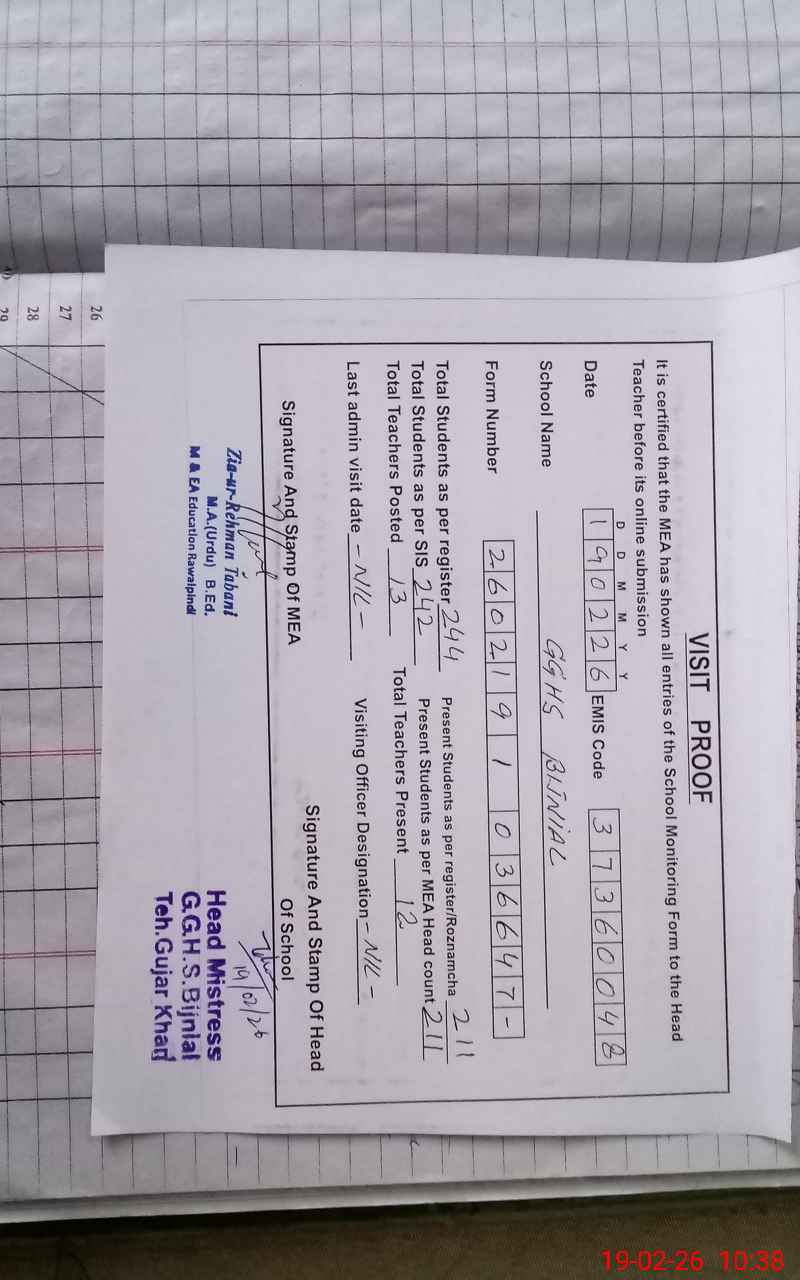 VISIT PROOF
It is certified that the MEA has shown all entries of the School Monitoring Form to the Head
Teacher before its online submission
D D M M Y Y
Date 190226 EMIS Code 37360048
School Name GGHS BIJNIAL
Form Number 2602191036647-
Total Students as per register 244 Present Students as per register/Roznamcha 211
Total Students as per SIS 242 Present Students as per MEA Head count 211
Total Teachers Posted 13 Total Teachers Present 12
Last admin visit date -NIL- Visiting Officer Designation -NIL-
Signature And Stamp Of MEA Signature And Stamp Of Head
Of School
Zia-ur-Rehman Tabani
M.A.(Urdu) B.Ed.
M & EA Education Rawalpindi
19/02/26
Head Mistress
G.G.H.S.Bijnial
Teh.Gujar Khan
26
27
28
29
19-02-26 10:38